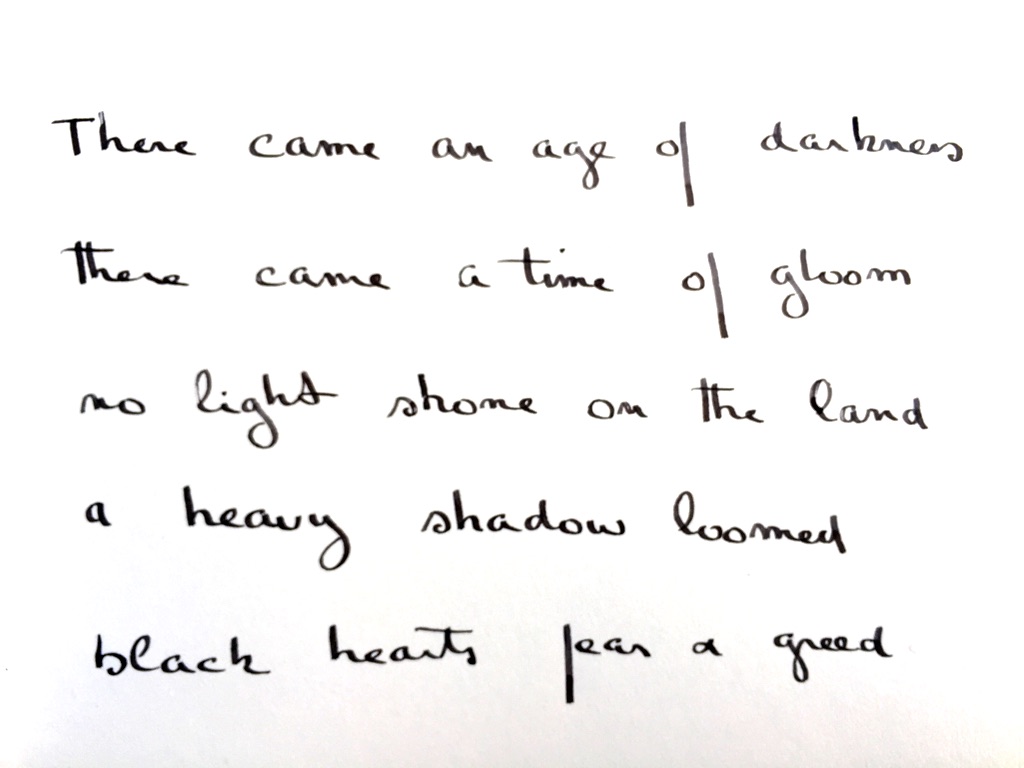 There came an age of darkness
there came a time of gloom
no light shone on the land
a heavy shadow loomed
black hearts fear a greed